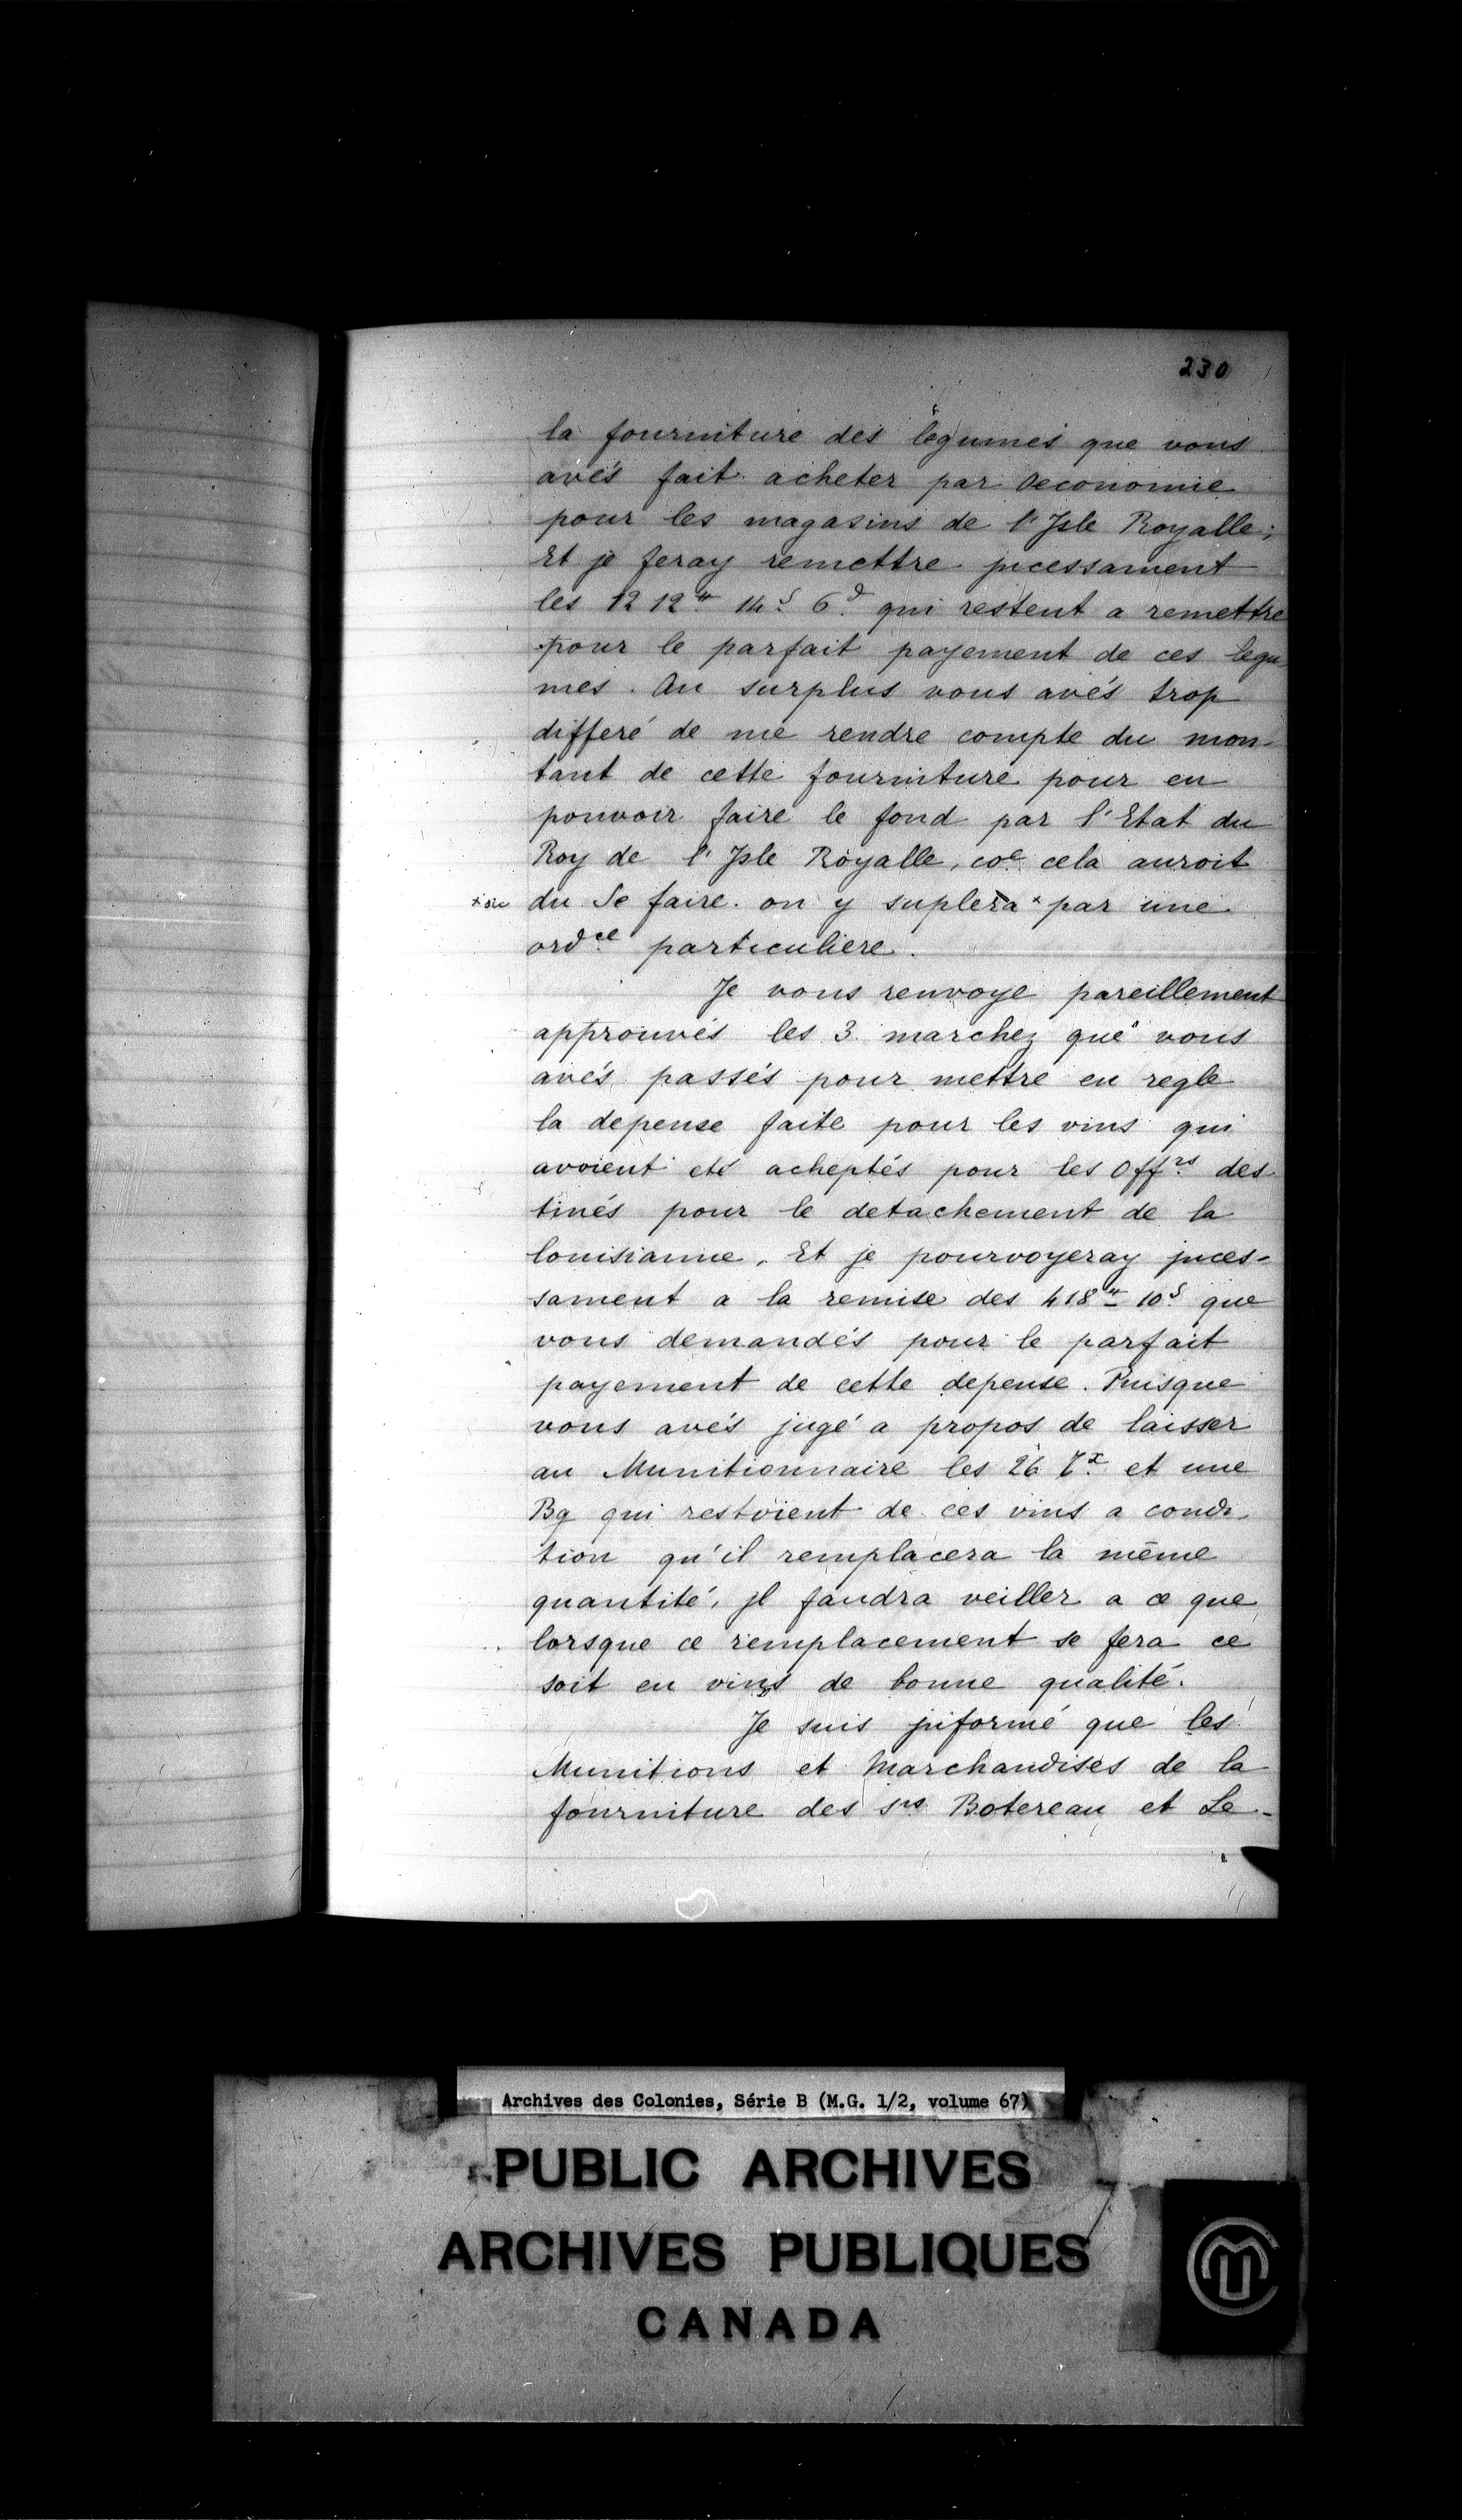 230
la fourniture des legumes que vous
avés fait acheter par Oeconomie
pour les magasins de l'Jsle Royalle;
Et je feray remettre jncessament
les 1212# 14s 6d qui restent a remettre
pour le parfait payement de ces legu
mes. Au surplus vous avés trop
differé de me rendre compte du mon-
tant de cette fourniture pour en
pouvoir faire le fond par l'Etat du
Roy de l'Jsle Royalle, coe cela auroit
+ sic du Se faire. on y suplera x par une
ordce particuliere.
Je vous renvoye pareillement
approuvés les 3. marchez que vous
avés passés pour mettre en regle
la depense faite pour les vins qui
avoient eté acheptés pour les Offrs des
tinés pour le detachement de la
louisianne, Et je pourvoyeray jnces-
sament a la remise des 418# 10s que
vous demandés pour le parfait
payement de cette depense. Puisque
vous avés jugé a propos de laisser
au Munitionnaire les 26 Tx et une
Bq qui restoient de ces vins a condi-
tion qu'il remplacera la même
quantité, jl faudra veiller a ce que
lorsque ce remplacement se fera ce
soit en vins de bonne qualité.
Je suis jnformé que les
Munitions et Marchandises de la
fourniture des srs Botereau et Le-
Archives des Colonies, Série B (M.G. 1/2, volume 67)
PUBLIC ARCHIVES
ARCHIVES PUBLIQUES
CANADA